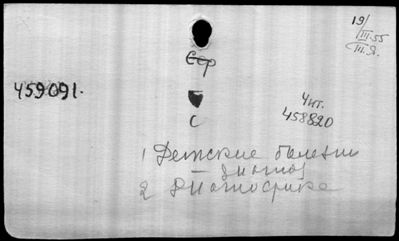 19/III.55
III.Я.
Сер
459091.
С
Чит.
458820
1 Детские болезни
Диагноз
2 Диагностика